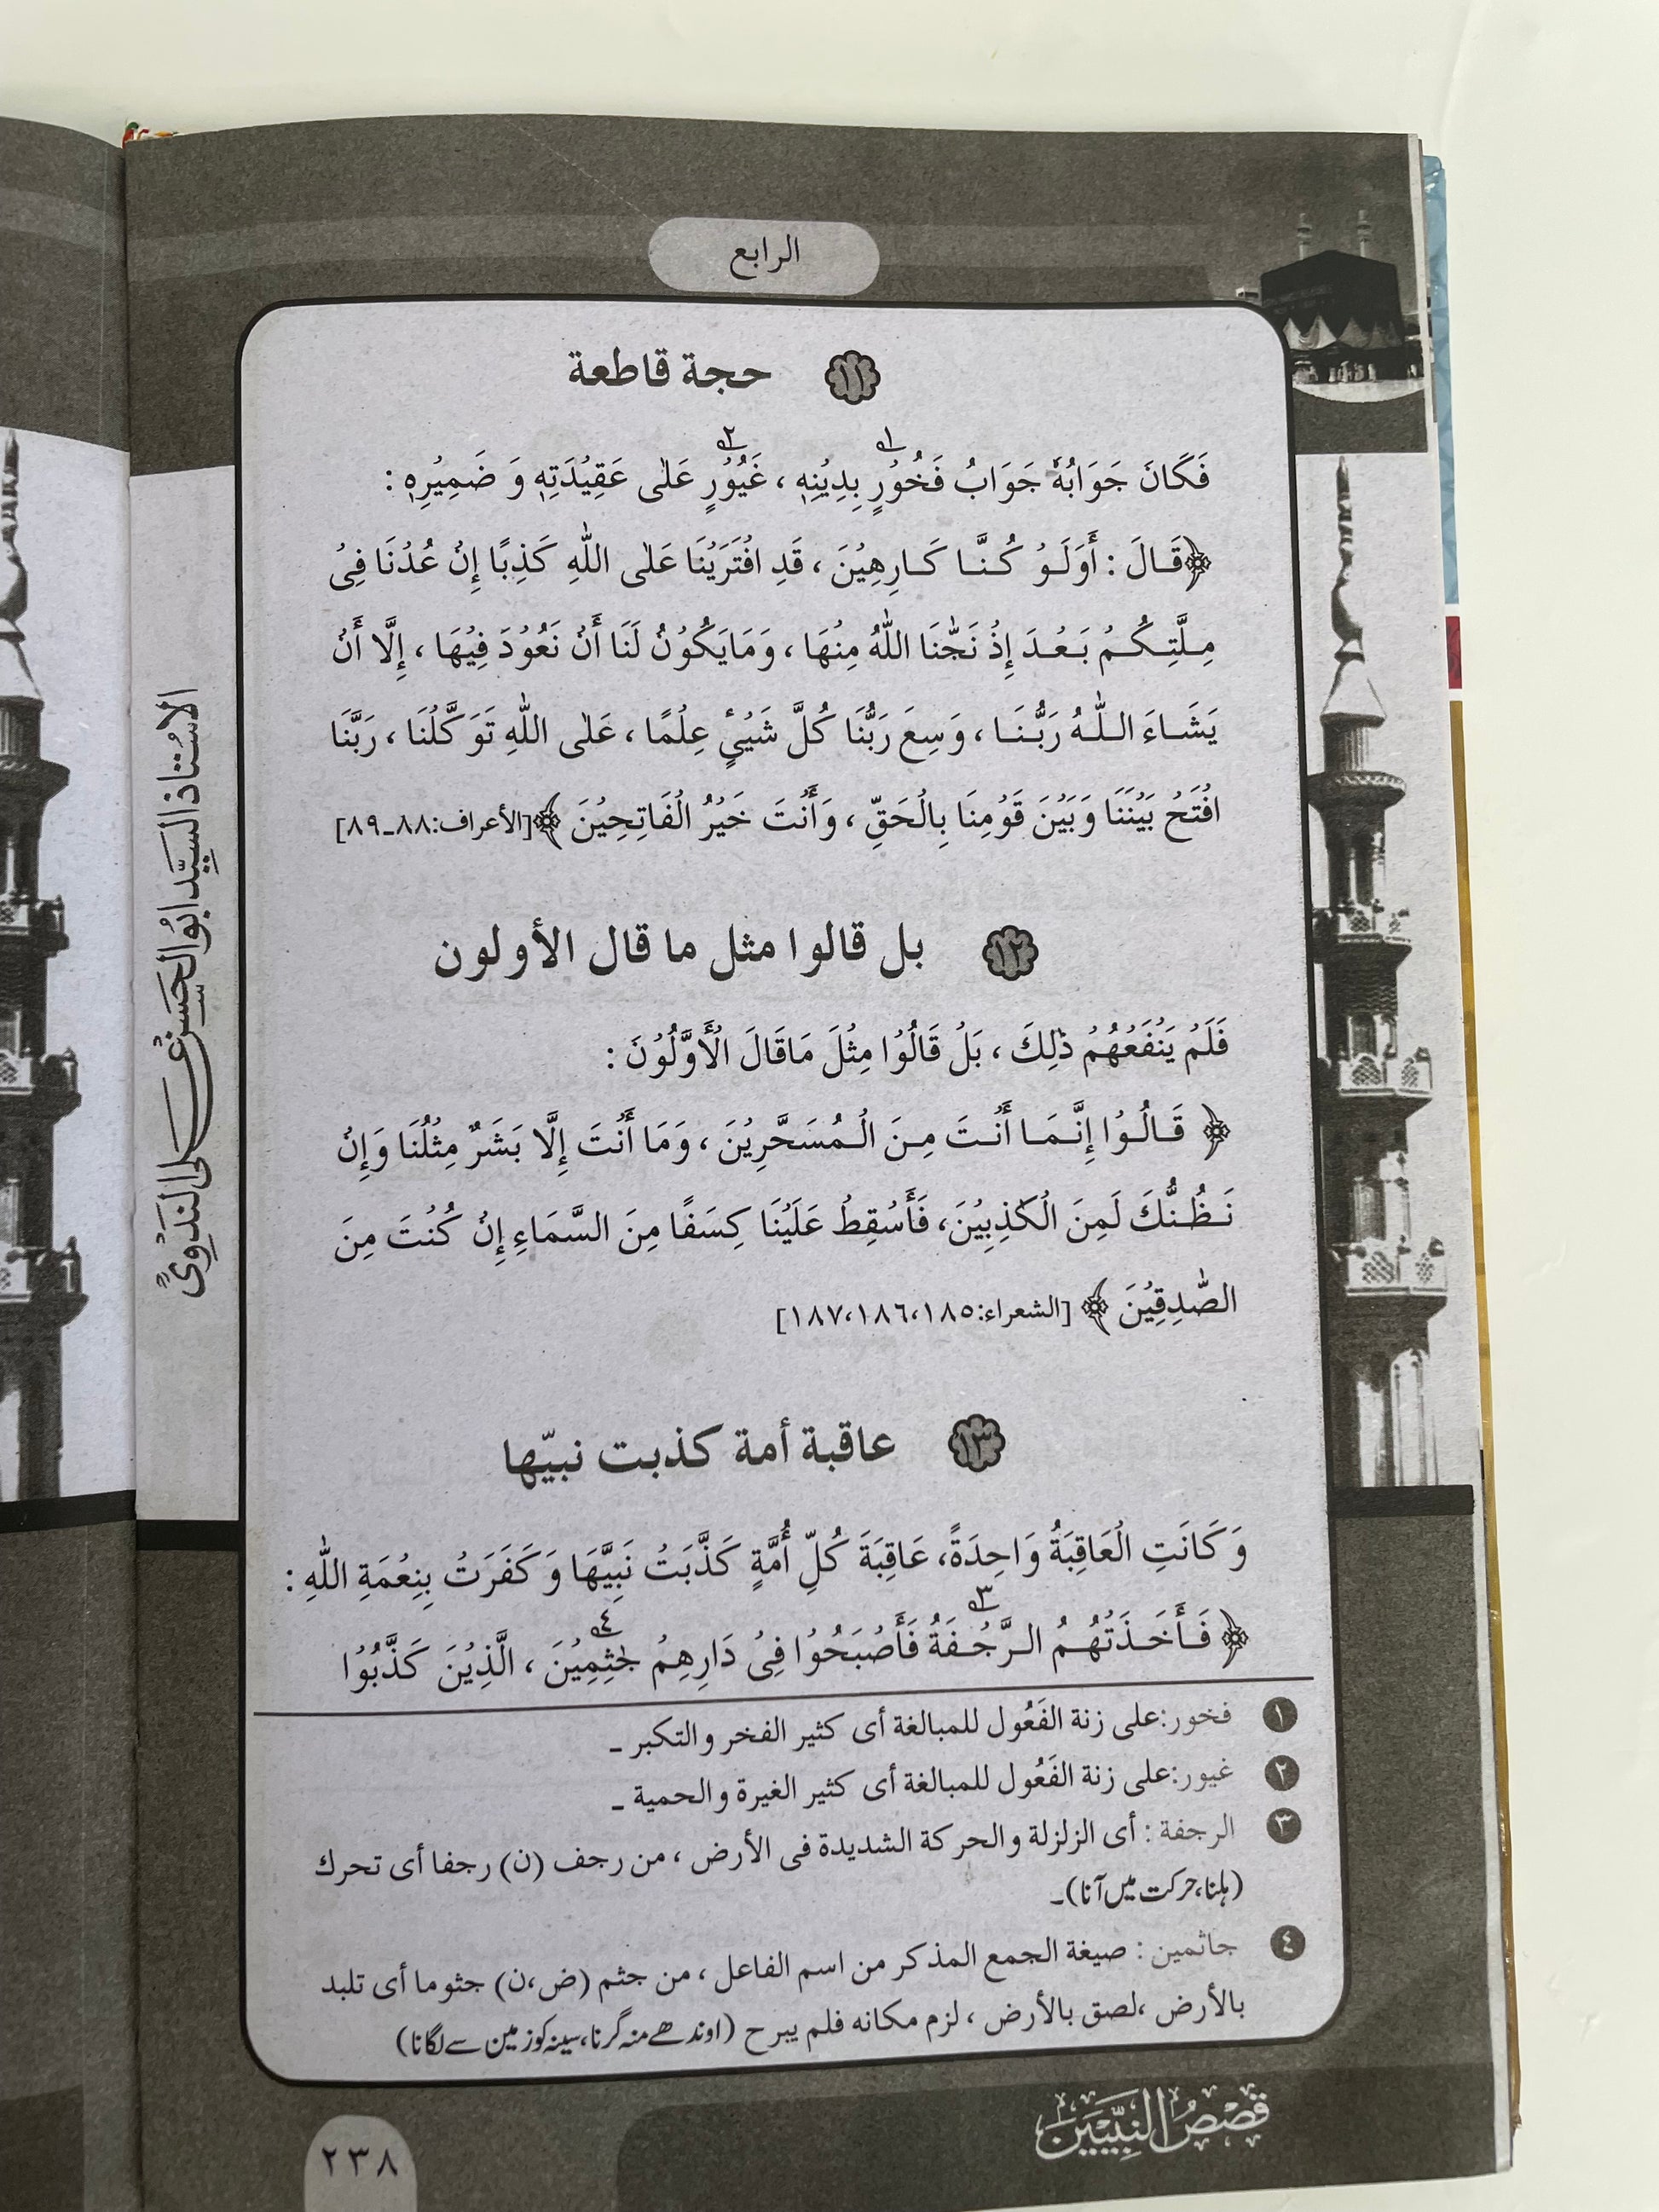 الرابع
١١ حجة قاطعة
فَكَانَ جَوَابُهٗ جَوَابُ فَخُوْرٍ١ بِدِيْنِهٖ ، غَيُوْرٍ٢ عَلٰى عَقِيْدَتِهٖ وَ ضَمِيْرِهٖ :
﴿قَالَ : أَوَلَوْ كُنَّا كَارِهِيْنَ ، قَدِ افْتَرَيْنَا عَلٰى اللّٰهِ كَذِبًا إِنْ عُدْنَا فِىْ
مِلَّتِكُمْ بَعْدَ إِذْ نَجّٰنَا اللّٰهُ مِنْهَا ، وَمَايَكُوْنُ لَنَا أَنْ نَعُوْدَ فِيْهَا ، إِلَّا أَنْ
يَشَاءَ اللّٰهُ رَبُّنَا ، وَسِعَ رَبُّنَا كُلَّ شَيْئٍ عِلْمًا ، عَلٰى اللّٰهِ تَوَكَّلْنَا ، رَبَّنَا
افْتَحْ بَيْنَنَا وَبَيْنَ قَوْمِنَا بِالْحَقِّ ، وَأَنْتَ خَيْرُ الْفَاتِحِيْنَ ﴾[الأعراف:٨٨ـ٨٩]
١٢ بل قالوا مثل ما قال الأولون
فَلَمْ يَنْفَعْهُمْ ذٰلِكَ ، بَلْ قَالُوْا مِثْلَ مَاقَالَ الْأَوَّلُوْنَ :
﴿ قَالُوْا إِنَّمَا أَنْتَ مِنَ الْمُسَحَّرِيْنَ ، وَمَا أَنْتَ إِلَّا بَشَرٌ مِثْلُنَا وَإِنْ
نَظُنُّكَ لَمِنَ الْكٰذِبِيْنَ، فَأَسْقِطْ عَلَيْنَا كِسَفًا مِنَ السَّمَاءِ إِنْ كُنْتَ مِنَ
الصّٰدِقِيْنَ ﴾ [الشعراء:١٨٥،١٨٦،١٨٧]
١٣ عاقبة أمة كذبت نبيّها
وَكَانَتِ الْعَاقِبَةُ وَاحِدَةً، عَاقِبَةَ كُلِّ أُمَّةٍ كَذَّبَتْ نَبِيَّهَا وَكَفَرَتْ بِنِعْمَةِ اللّٰهِ :
﴿ فَأَخَذَتْهُمُ الرَّجْفَةُ٣ فَأَصْبَحُوْا فِىْ دَارِهِمْ جٰثِمِيْنَ٤ ، الَّذِيْنَ كَذَّبُوْا
١ فخور:على زنة الفَعُول للمبالغة أى كثير الفخر والتكبر ـ
٢ غيور:على زنة الفَعُول للمبالغة أى كثير الغيرة والحمية ـ
٣ الرجفة : أى الزلزلة والحركة الشديدة فى الأرض ، من رجف (ن) رجفا أى تحرك
(ہلنا،حرکت میں آنا)۔
٤ جاثمين : صيغة الجمع المذكر من اسم الفاعل ، من جثم (ض،ن) جثوما أى تلبد
بالأرض ،لصق بالأرض ، لزم مكانه فلم يبرح (اوندھے منہ گرنا،سینہ کو زمین سے لگانا)
قصص النبيين
٢٣٨
الاستاذ السيد ابو الحسن على الندوى